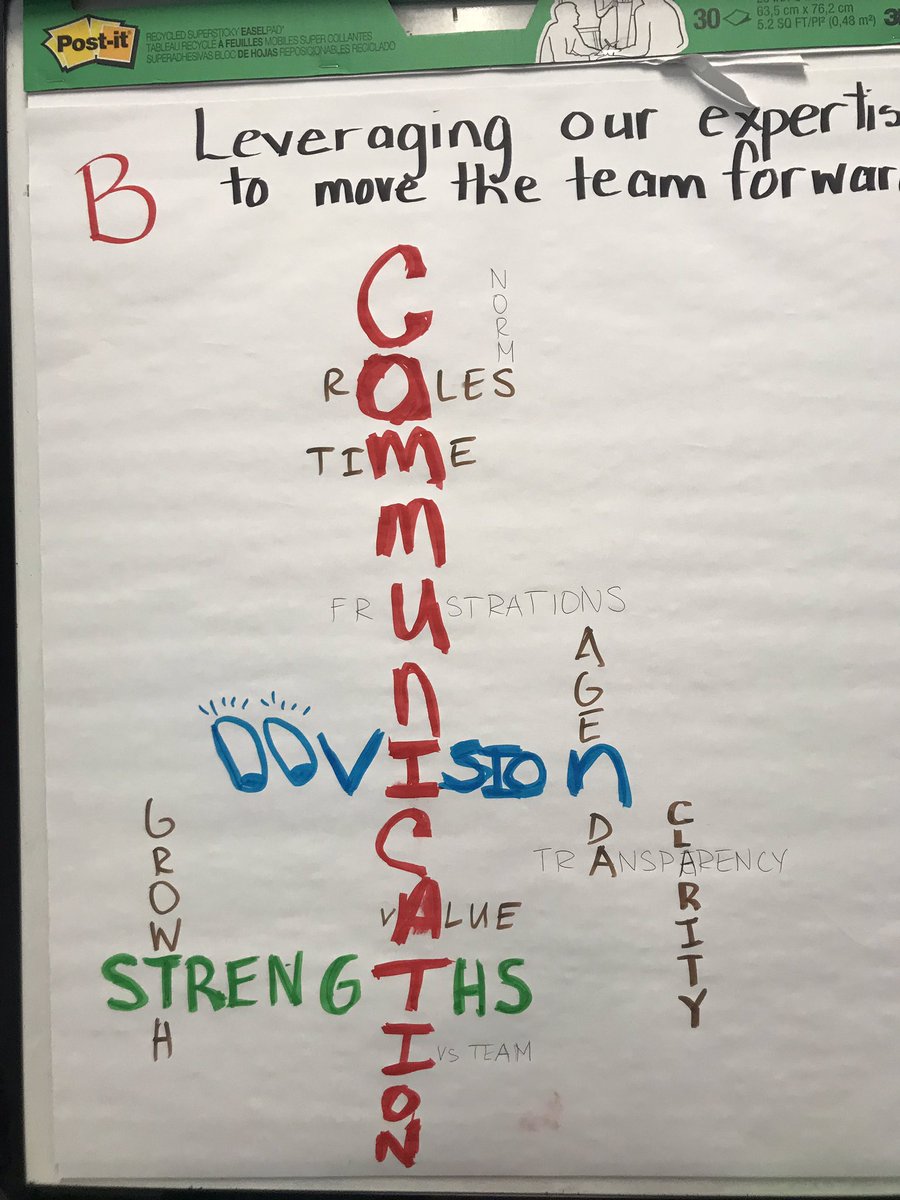 Post-it
RECYCLED SUPERSTICKY EASELPAD*
TABLEAU RECYCLÉ À FEUILLES MOBILES SUPER COLLANTES
SUPERADHESIVAS BLOC DE HOJAS REPOSICIONABLES RECICLADO
30
63,5 cm x 76,2 cm
5.2 SQ FT/PF (0,48 m²)
B
Leveraging our expertis
to move the team forwar
COMMUNICATION
NORMS
ROLES
TIME
FRUSTRATIONS
AGEnDA
VISIOn
GROWTH
CLARITY
TRANSPARENCY
VALUE
STRENGTHS
I VS TEAM